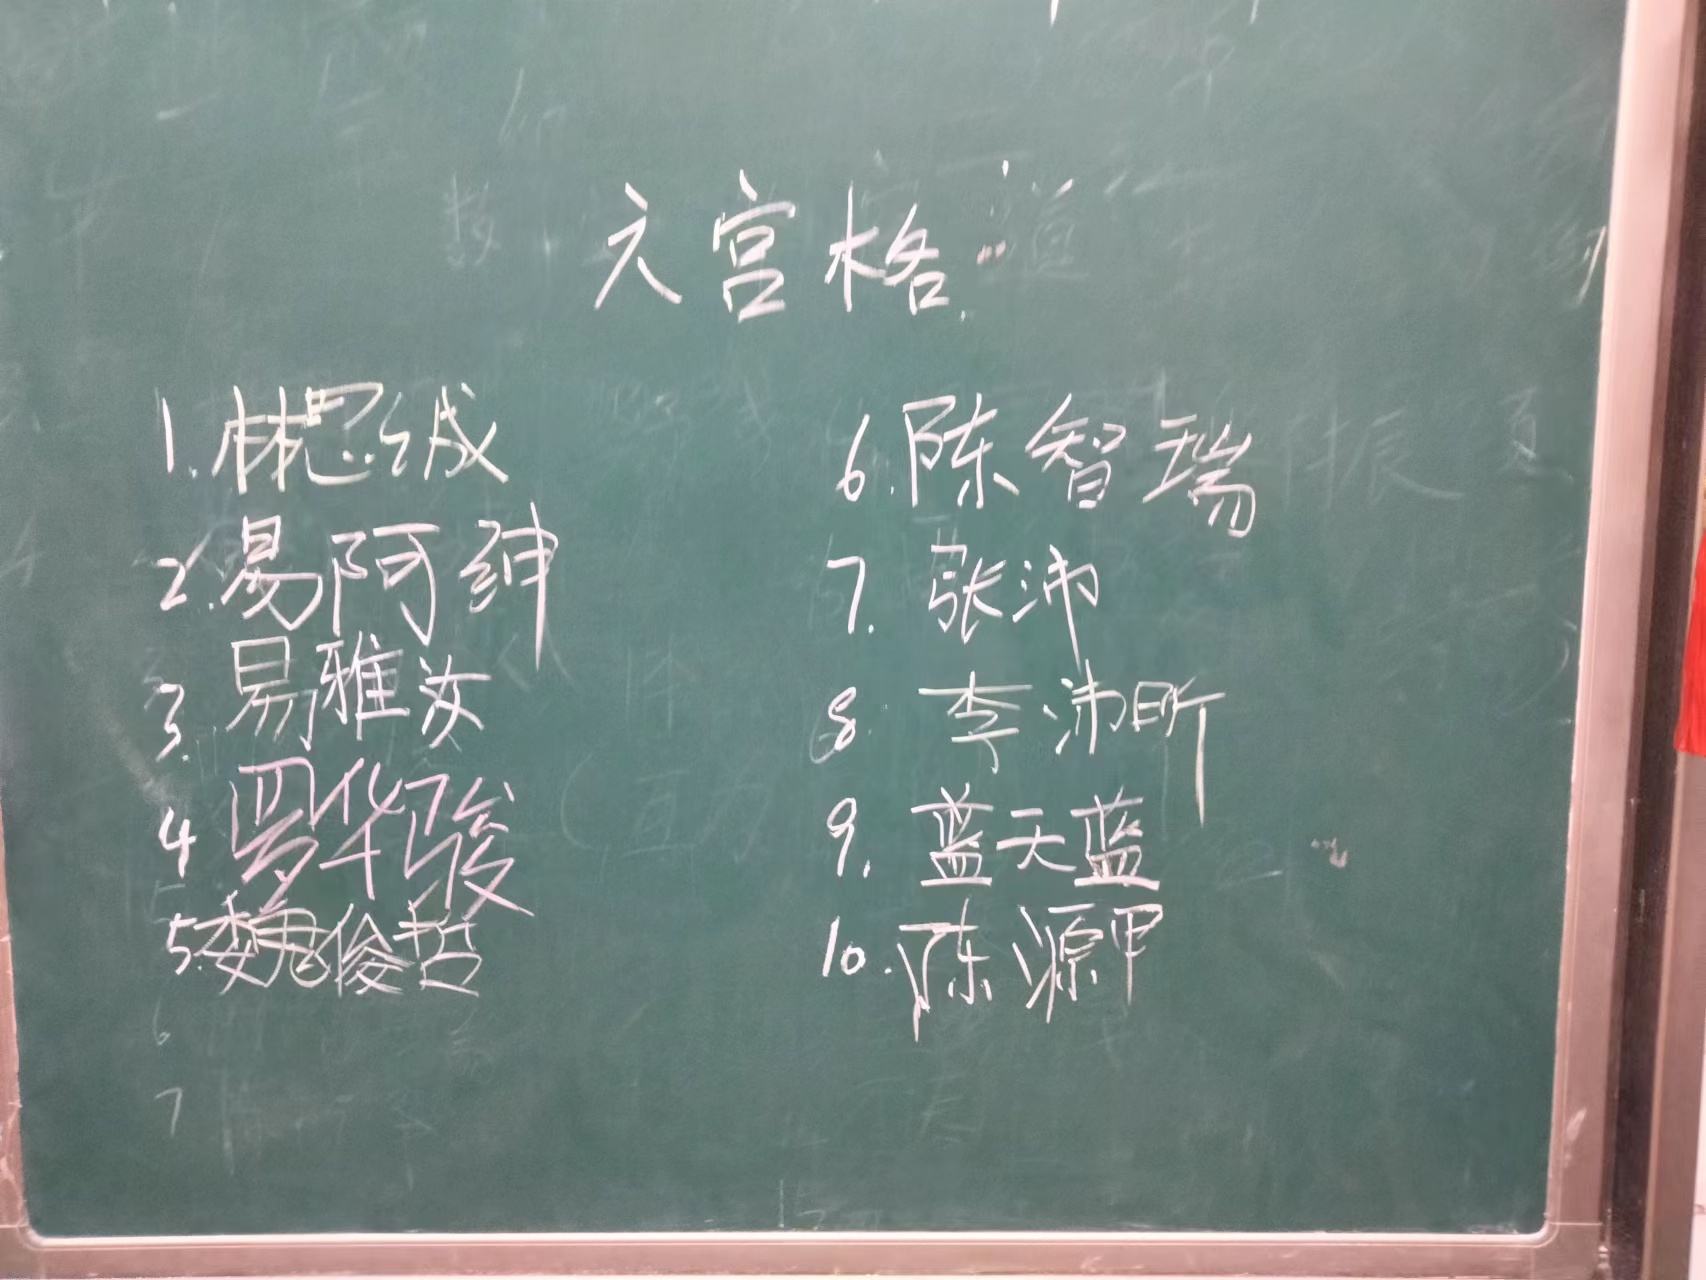 六宫格
1. 林思诚
2. 易阿绅
3. 易雅汝
4 罗华骏
5. 魏俊哲
6. 陈智瑞
7. 张沛
8. 李沛昕
9. 蓝天蓝
10. 陈源甲
6
7